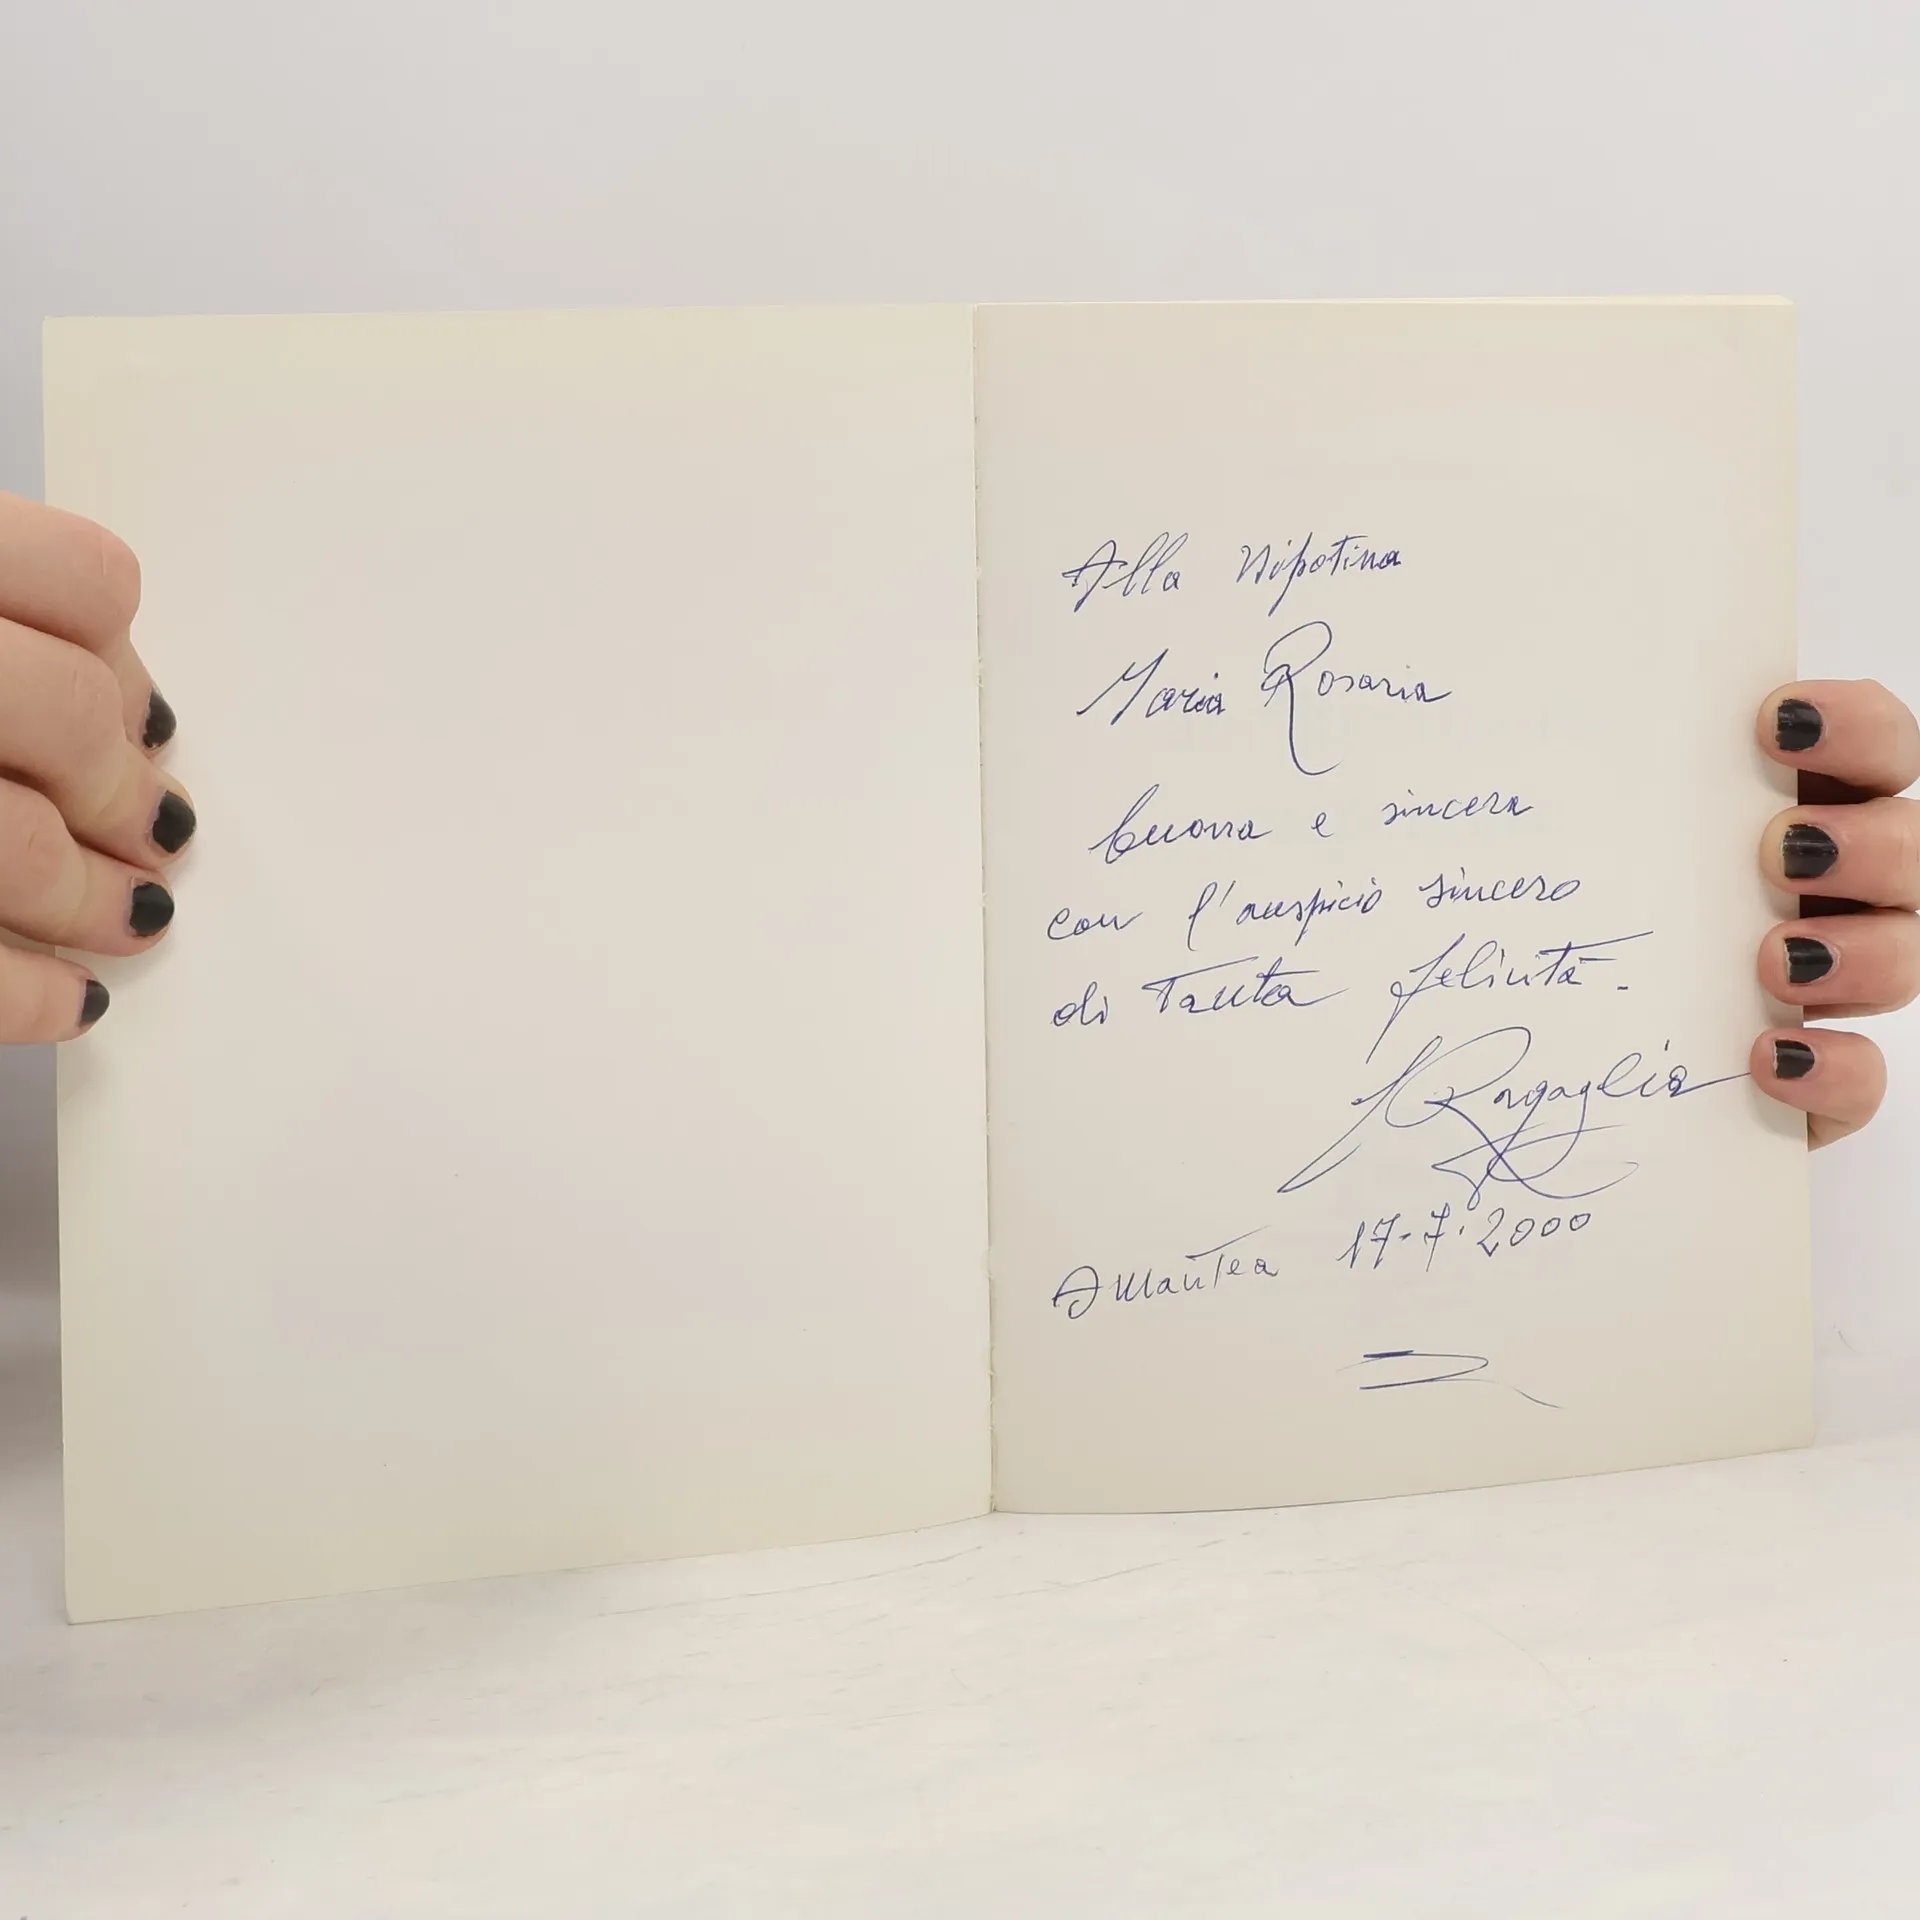 Alla Nipotina
Maria Rosaria
buona e sincera
con l'auspicio sincero
di Tanta felicità.
Amantea 17-7-2000